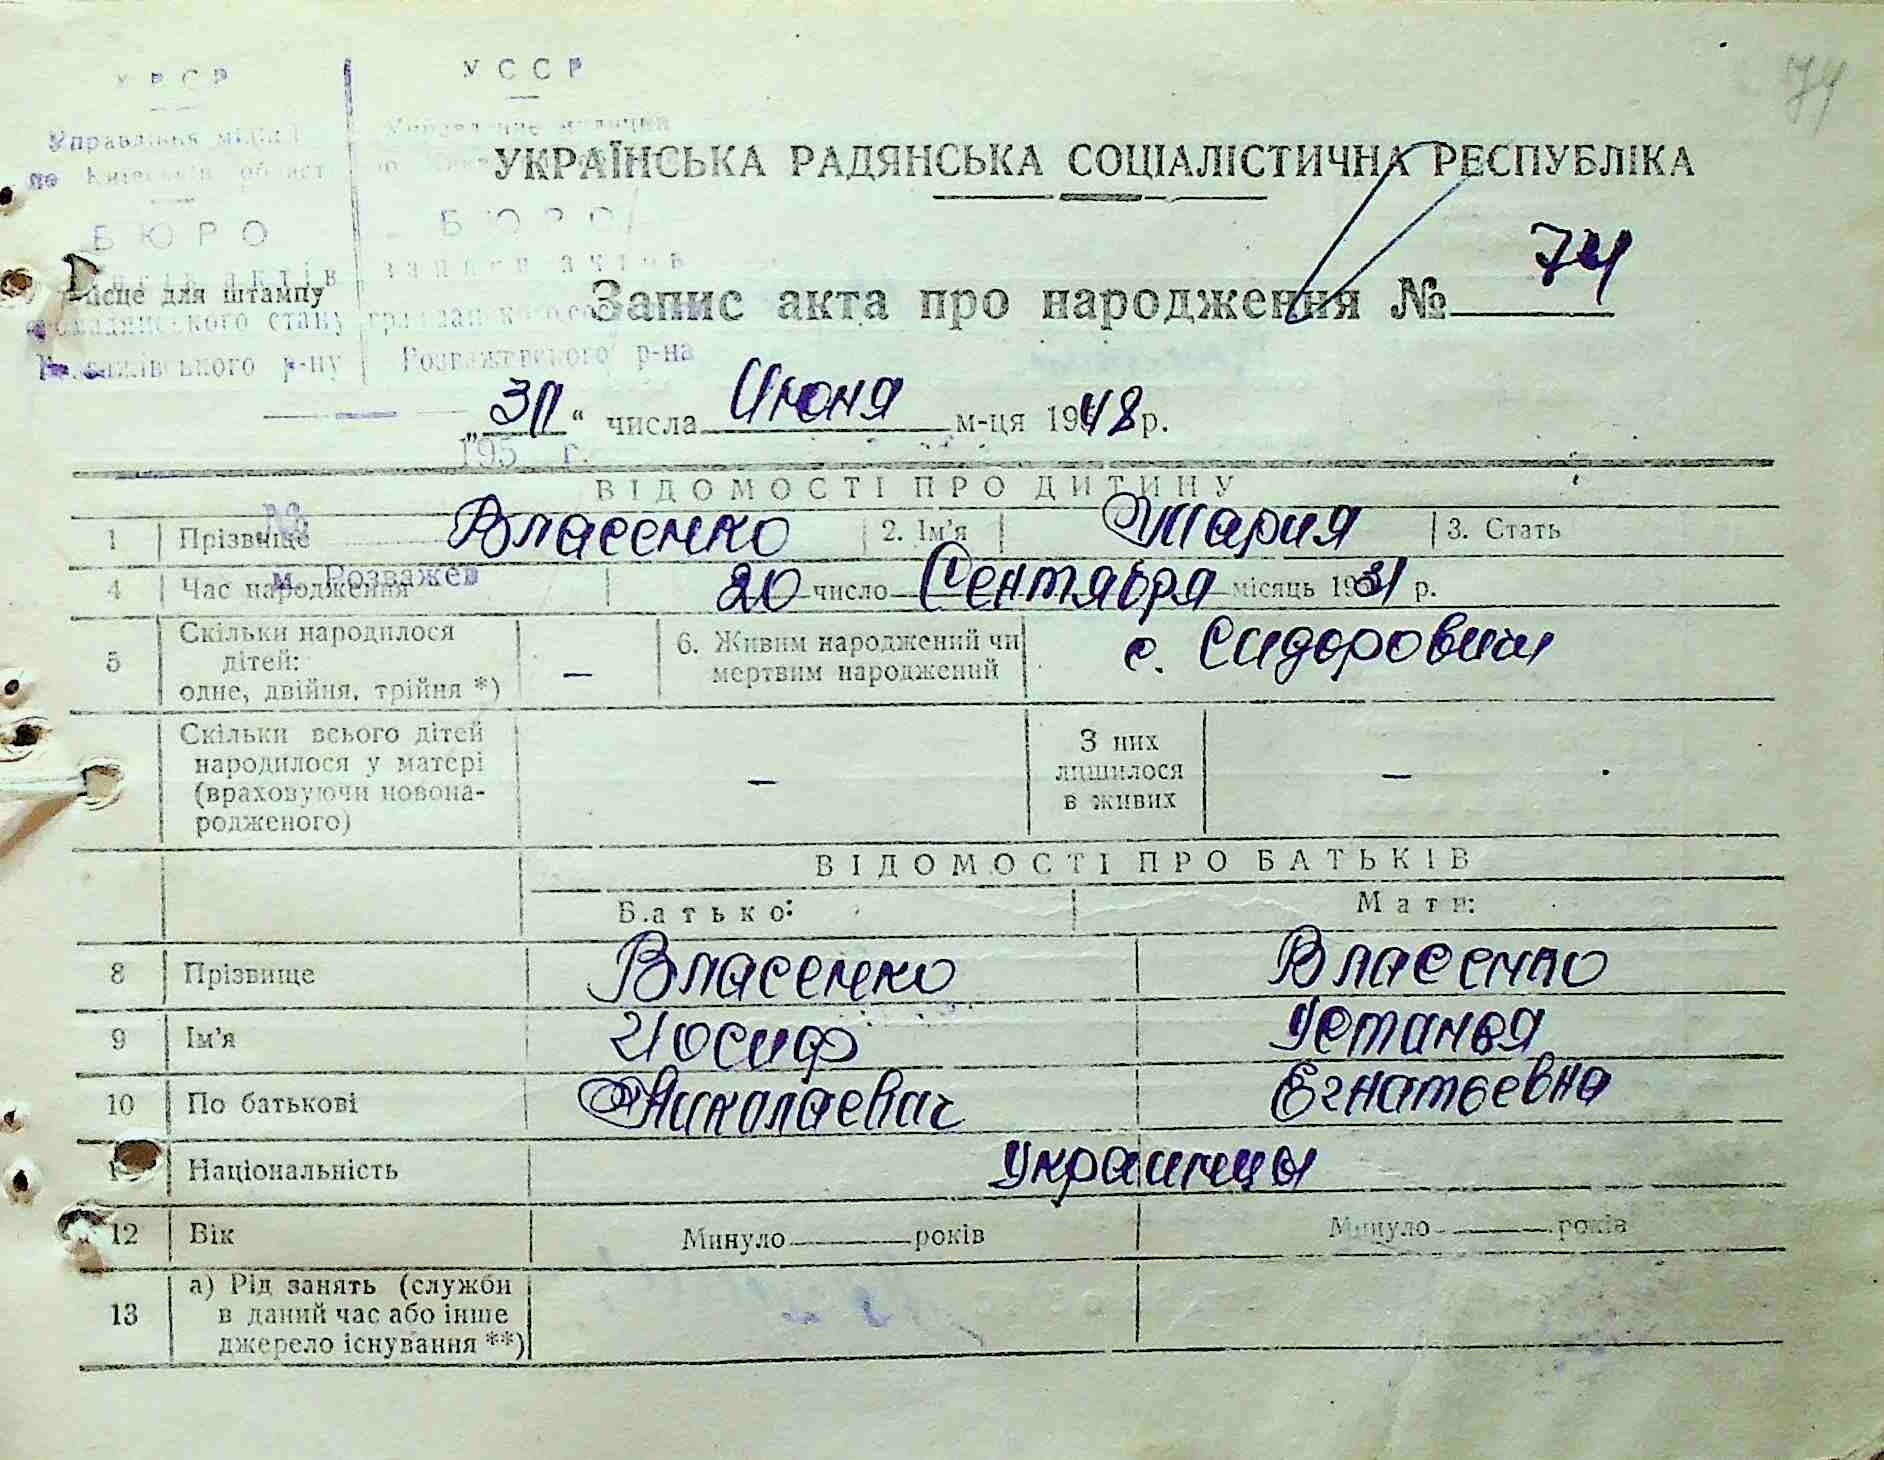 74
УРСР
УССР
Управління міліції
Управление милиции
по Київській област
УКРАЇНСЬКА РАДЯНСЬКА СОЦІАЛІСТИЧНА РЕСПУБЛІКА
БЮРО
БЮРО
записи актів
Місце для штампу
Запис акта про народження № 74
громадянського стану
Розважівського р-ну
Розважевского р-на
"30" числа Июня м-ця 1948 р.
195 г.
ВІДОМОСТІ ПРО ДИТИНУ
№
1 Прізвище Власенко 2. Ім'я Мария 3. Стать
м. Розважев
4 Час народження 20 число Сентября місяць 1931 р.
5 Скільки народилося дітей: одне, двійня, трійня *) — 6. Живим народжений чи мертвим народжений с. Сидоровичи
Скільки всього дітей народилося у матері (враховуючи новона-родженого) — З них лишилося в живих —
ВІДОМОСТІ ПРО БАТЬКІВ
Батько: Мати:
8 Прізвище Власенко Власенко
9 Ім'я Иосиф Устинья
10 По батькові Николаевич Егнатьевна
Національність Украинцы
12 Вік Минуло років Минуло років
13 а) Рід занять (служби
в даний час або інше
джерело існування **)